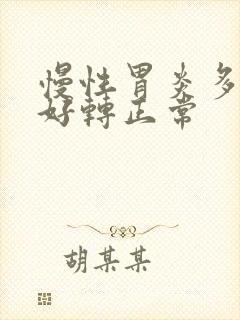 慢性胃炎多
好轉正常
胡某某